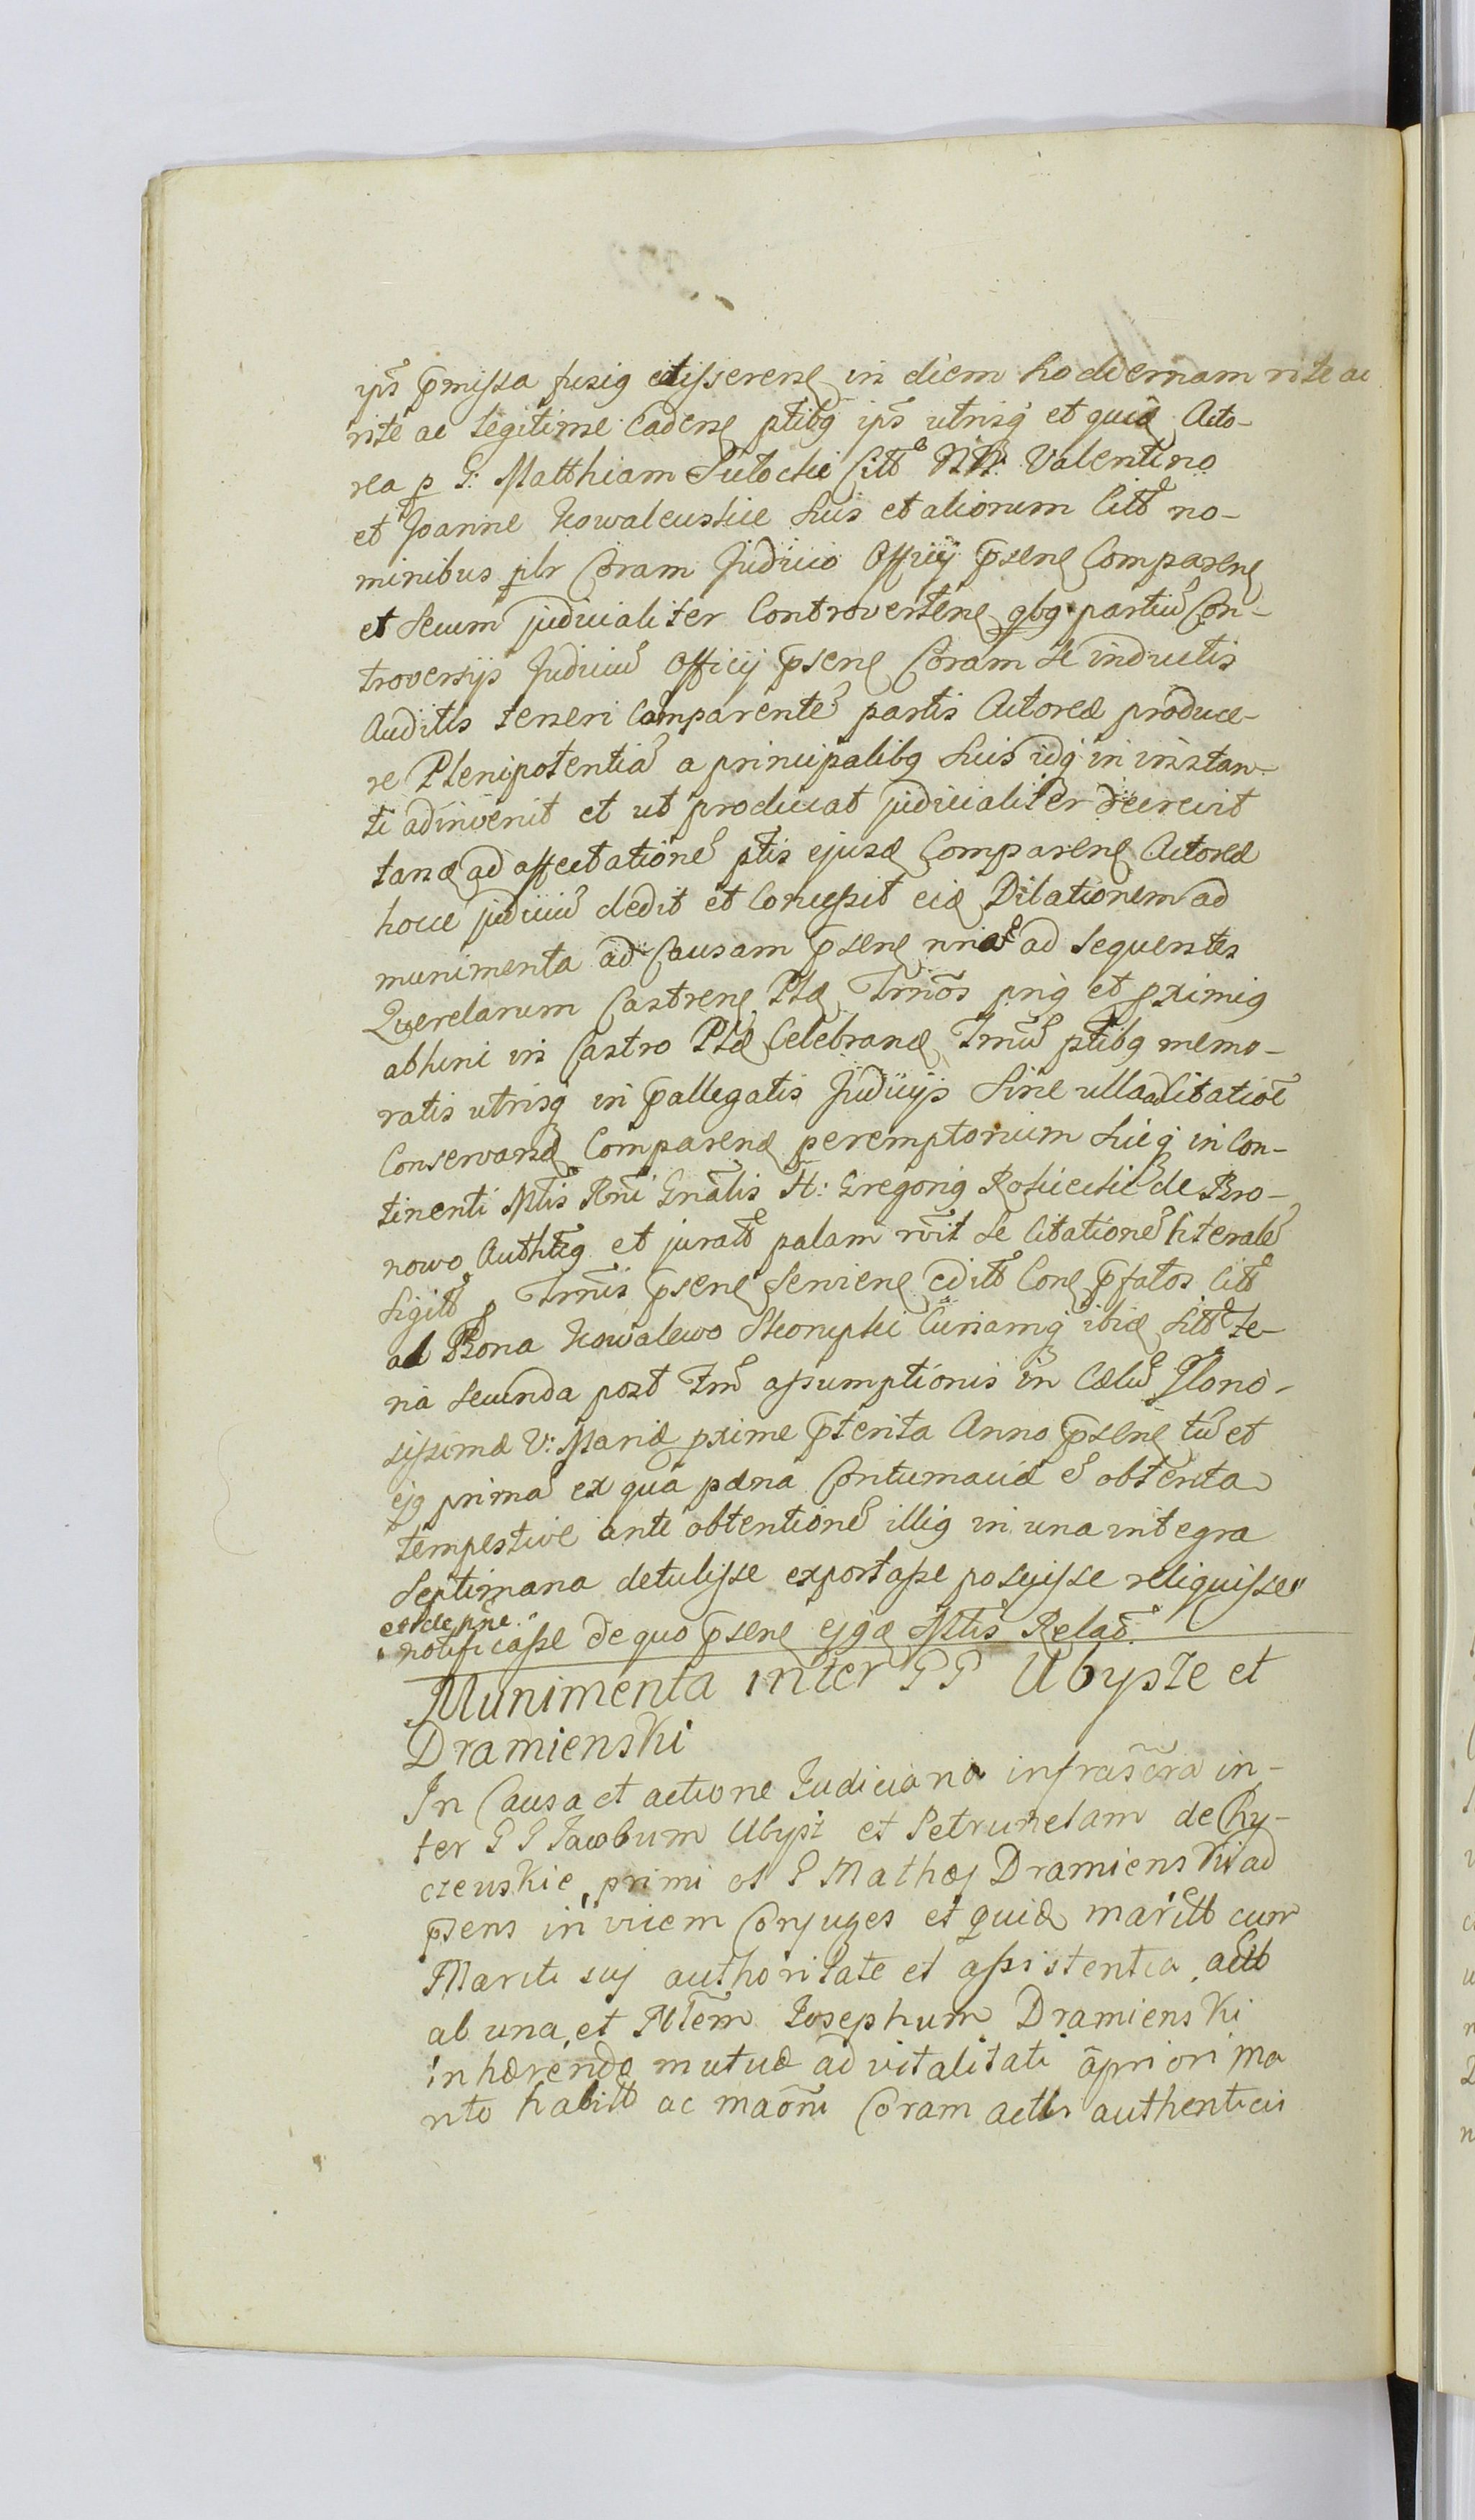 ips pmissa fusig edisserene in diem hodiernam rite ac
rite ac legitime Cadene ptibq ips utrisq et quid Acto-
rea p G: Matthiam Sulocki Citt NN: Valentino
et Joanne Kowalewskie suis et aliorum Citt no-
minibus plr Coram Judicio Officij psene Comparene
et secum judicialiter Controvertene qbq partiu Con-
troversijs Judiciu Officij psene Coram se inductis
Auditis teneri Comparente partis Actoreæ produce-
re Plenipotentia a principalibq suis idq in instan-
ti adinvenit et ut producat judicialiter decrevit
tand ad affectatione ptis ejusd Comparene Actoreæ
hocce judiciu dedit et Concessit eid Dilationem ad
munimenta ad Causam psene nria ad sequentes
Querelarum Castrene Pld Tminos png et pximiq
abhinc in Castro Pld Celebrand Tmu ptibq memo-
ratis utrisq in pallegatis Judicijs sine ulla Citatioe
Conservand Comparend peremptorium suiq in Con-
tinenti Mtis Rni Gnalis H: Gregoriq Rosciecki de Bro-
nowo Authtiq et juratt palam rvit se Citatione literale
sigitt p Tmis psene serviene editt Conq pfatos Citt
ad Bona Kowalewo Skorupki Curiamq ibid sitt fe-
ria secunda post Fm assumptionis in Cælu Glorio-
sissimæ V: Mariæ pxime pterita Anno psene tu et
ejq prima ex qua pæna Contumaciæ e obtenta
tempestive ante obtentione illiq in una integra
septimana detulisse exportasse posuisse reliquisse"
et de pne
" notificasse de quo psene ejqd Mtis Relao
Munimenta inter G G Ubysze et
Dramienski
In Causa et actione Judiciana infrascra in-
ter G G Jacobum Ubysz et Petrunelam de Chy-
czewskie, primi et G Mathæj Dramienski ad
psens in vicem Conjuges et quid maritt cum
Mariti suj authoritate et assistentia actt
ab una, et Mtem Josephum Dramienski
inhærendo mutuæ advitalitati apriori Ma
rito habitt ac maoni Coram actis authenticis